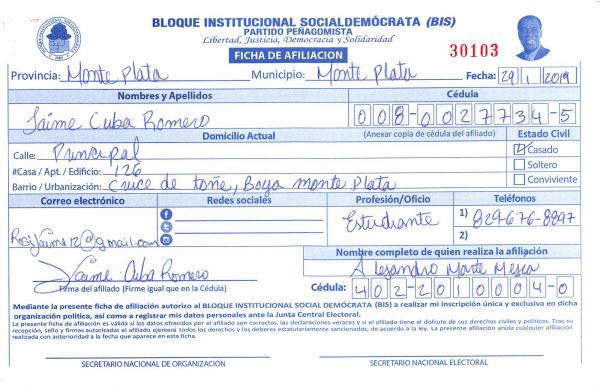 BLOQUE INSTITUCIONAL SOCIALDEMÓCRATA (BIS)
PARTIDO PEÑAGOMISTA
Libertad, Justicia, Democracia y Solidaridad
FICHA DE AFILIACION
30103
Provincia: Monte Plata Municipio: Monte Plata Fecha: 29 1 2019
Nombres y Apellidos Cédula
Jaime Cuba Romero 008-0027734-5
Domicilio Actual (Anexar copia de cédula del afiliado) Estado Civil
Calle: Principal Casado
#Casa / Apt. / Edificio: 126 Soltero
Barrio / Urbanización: Cruce de toñe, Boya monte Plata Conviviente
Correo electrónico Redes sociales Profesión/Oficio Teléfonos
Estudiante 1) 829-676-8897
RosiJaime12@gmail.com 2)
Nombre completo de quien realiza la afiliación
Jaime Cuba Romero Alejandro Monte Mejea
Firma del afiliado (Firme igual que en la Cédula) Cédula: 402-2010004-0
Mediante la presente ficha de afiliación autorizo al BLOQUE INSTITUCIONAL SOCIAL DEMÓCRATA (BIS) a realizar mi inscripción única y exclusiva en dicha
organización política, así como a registrar mis datos personales ante la Junta Central Electoral.
La presente ficha de afiliación es válida si los datos ofrecidos por el afiliado son correctos, las declaraciones veraces y si el afiliado tiene el disfrute de sus derechos civiles y políticos. Tras su
recepción, sello y firmas autorizadas el afiliado ejercerá todos los derechos y los deberes estatutariamente sancionados, de acuerdo a la ley. La presente afiliación anula cualquier afiliación
realizada con anterioridad a la fecha que aparece en esta ficha.
SECRETARIO NACIONAL DE ORGANIZACIÓN SECRETARIO NACIONAL ELECTORAL